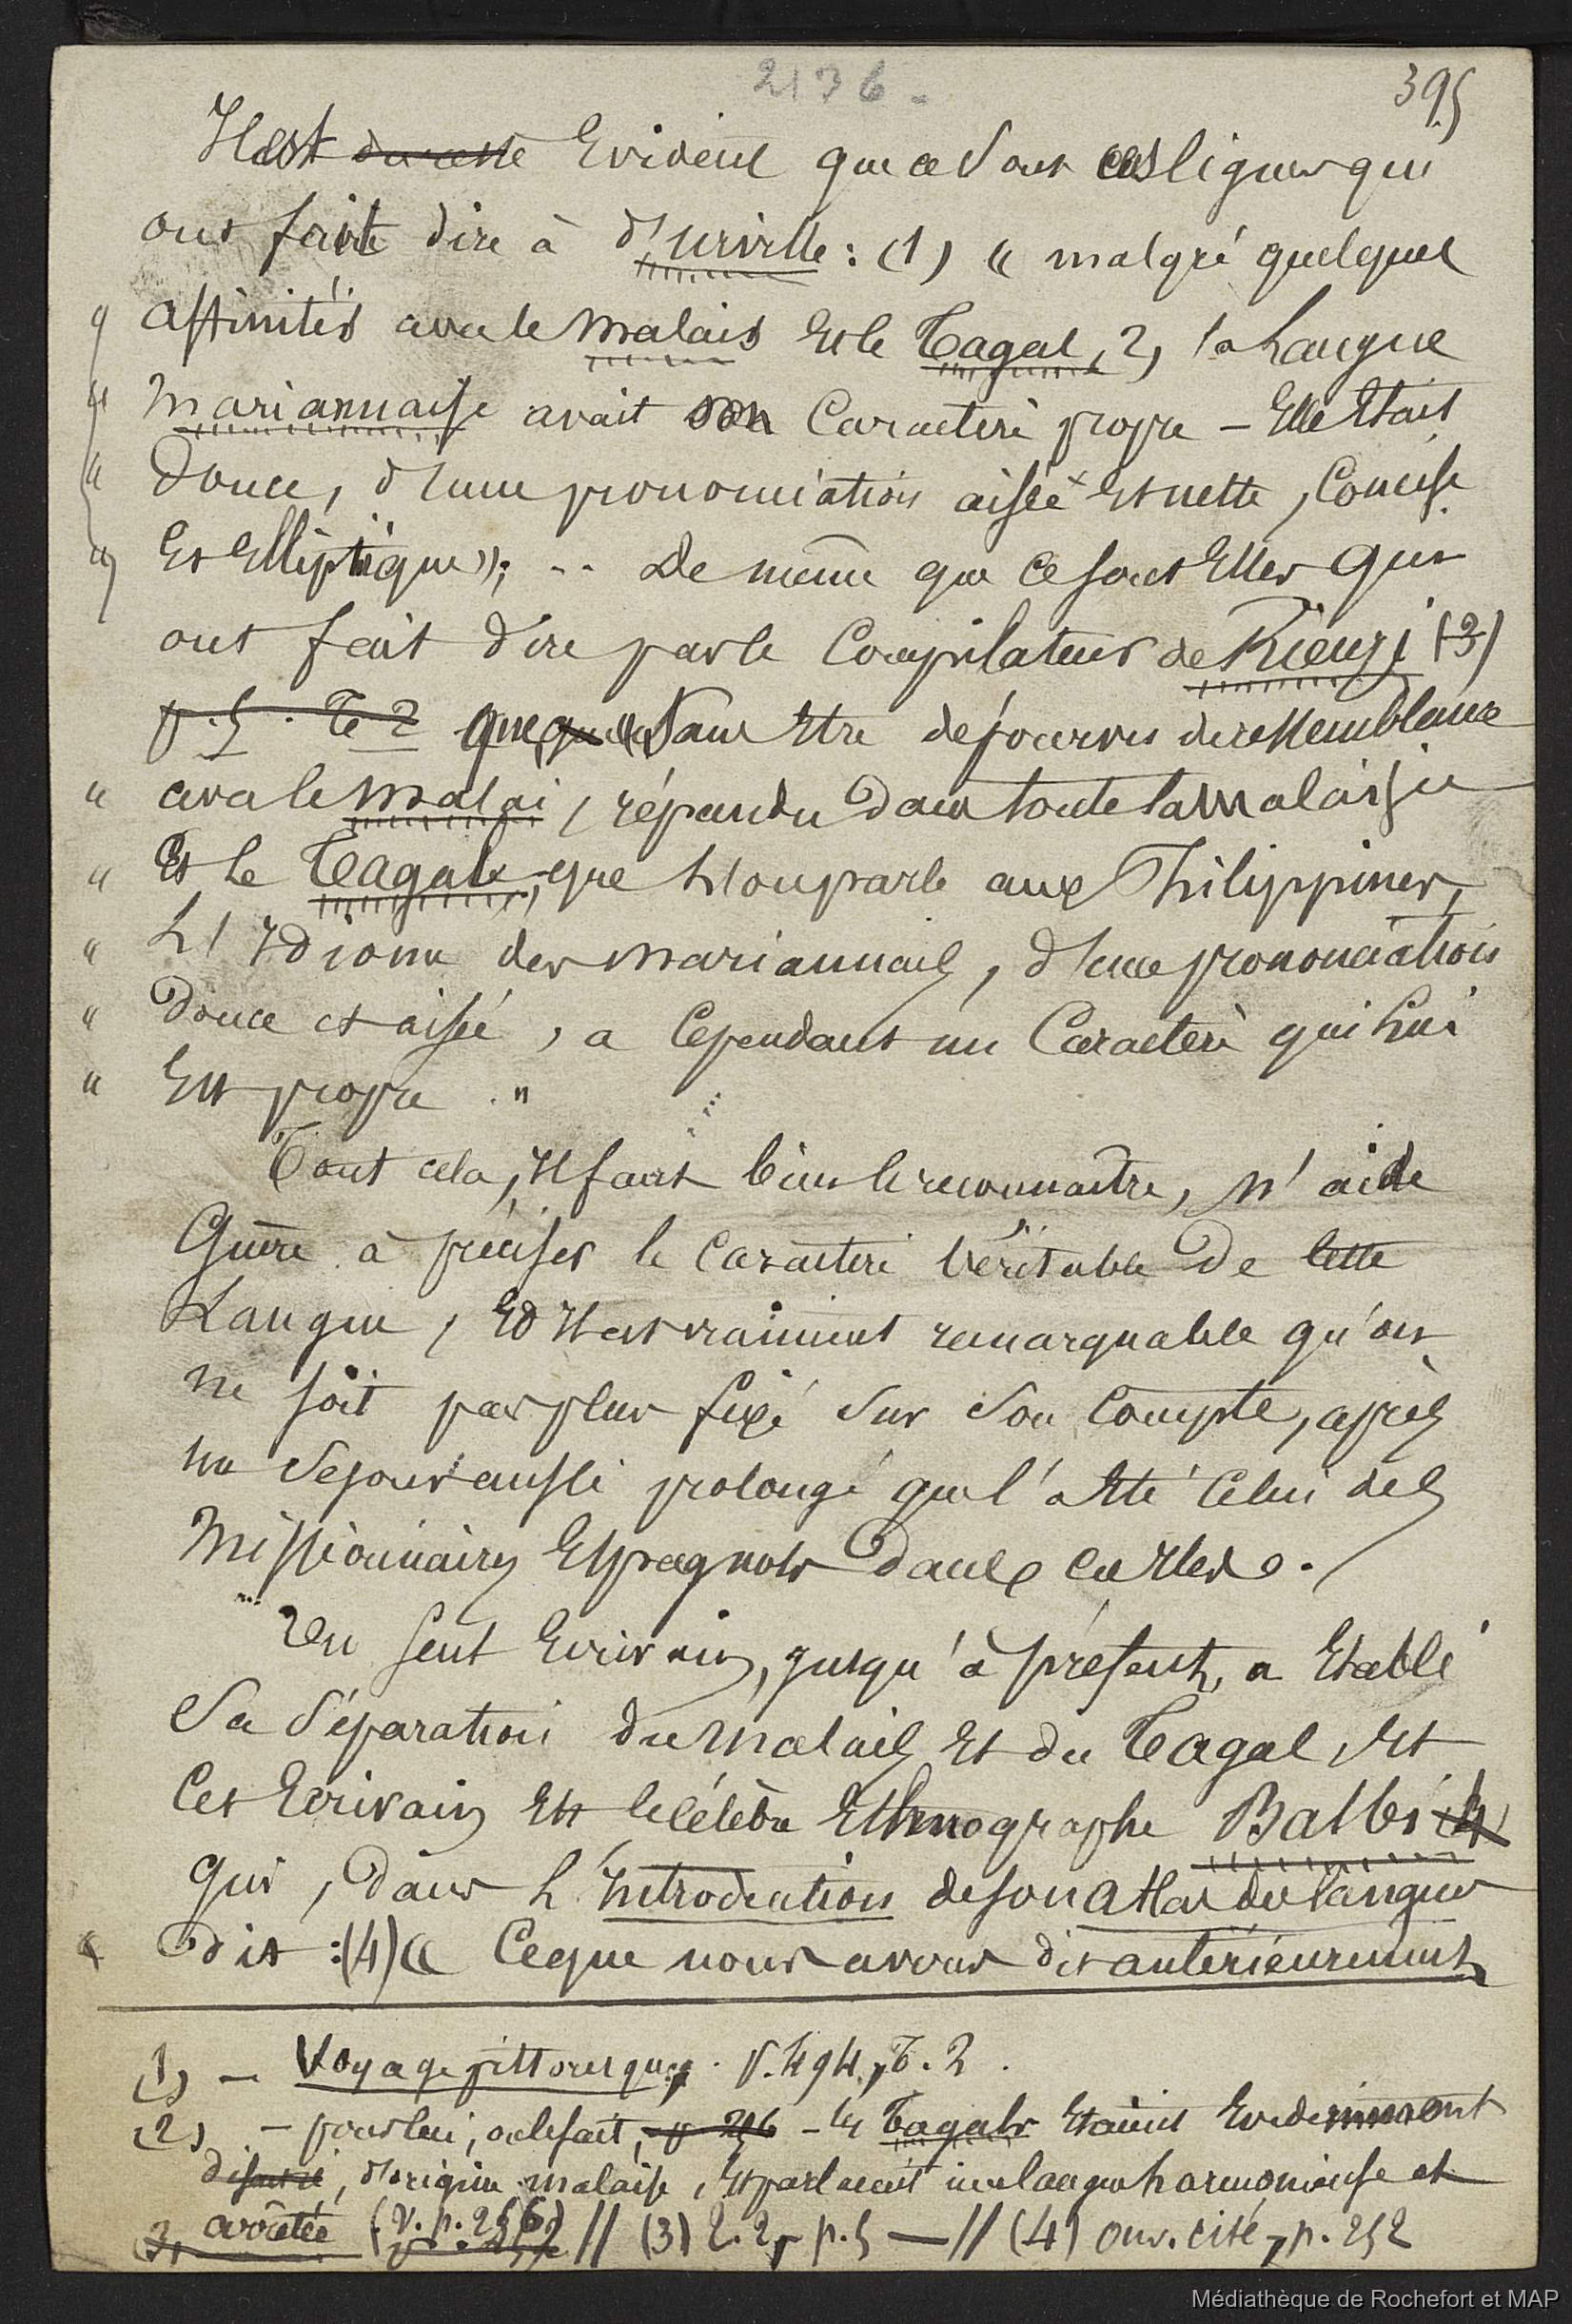 2136.
395
Il est du reste Evident que ce sont ces lignes qui
ont fait dire à d'Urville : (1) « malgré quelques
affinités avec le Malais et le Tagal, 2, la Langue
" Mariannaise avait son Caractère propre – Elle était
" Douce, d'une prononciation aisée et nette, Concise
" Et Elliptique »; .. De même que ce sont Elles qui
ont fait dire par le Compilateur de Rienzi (3)
p. 5. T. 2 que « Sans Etre dépourvu de ressemblance
" avec le Malai, répandu dans toute la Malaisie
" Et le Tagale, que l'on parle aux Philippines,
" L'Idiome des Mariannais, d'une prononciation
" Douce et aisée, a Cependant un Caractère qui lui
" Est propre. "
Tout cela, Il faut bien le reconnaître, n'aide
Guère à préciser le Caractère véritable De cette
Langue, Et Il est vraiment remarquable qu'on
ne soit pas plus fixé sur son Compte, après
un Séjour aussi prolongé que l'a été Celui des
Missionnaires Espagnols Dans ces Iles.
Un seul Ecrivain, jusqu'à présent, a Etabli
Sa Séparation du Malais Et du Tagal Et
Cet Ecrivain Est le célèbre Ethnographe Balbi (4)
Qui, Dans l'Introduction de son Atlas des langues
" Dit : (4) « Ce que nous avons dit antérieurement
(1) – Voyage pittoresque, . p. 494, T. 2.
(2) – pour lui, en effet, – p 256 – les Tagals Etaient Evidemment
, d'origine malaise, Et parlaient une langue harmonieuse et
arrêtée (v. p. 256) // (3) T. 2, p. 5 — // (4) ouv. cité, p. 252
Médiathèque de Rochefort et MAP